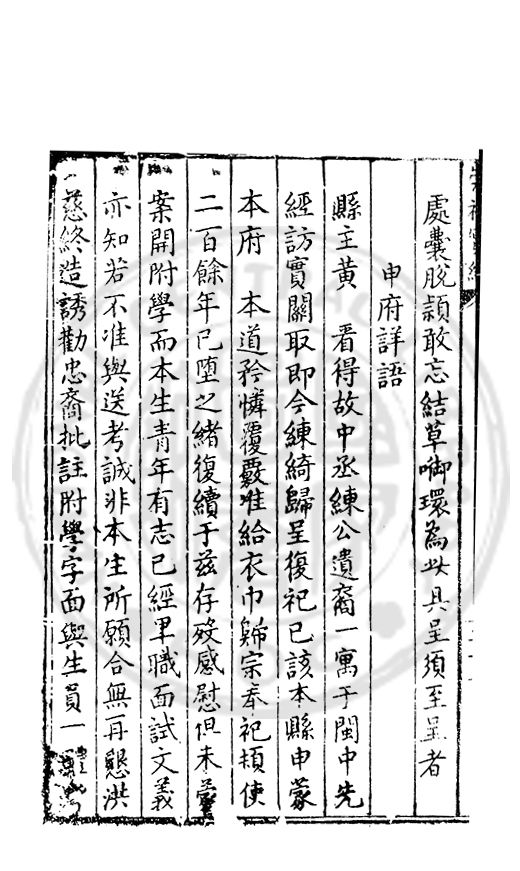 處囊脫穎敢忘結草啣環為此具呈須至呈者
申府詳語
縣主黃　看得故中丞練公遺裔一寓于閩中先
經訪實關取即今練綺歸呈復祀已該本縣申蒙
本府　本道矜憐覆覈准給衣巾歸宗奉祀頓使
二百餘年已墮之緒復續于茲存歿感慰但未蒙
案開附學而本生青年有志已經卑職面試文義
亦知若不准與送考誠非本生所願合無再懇洪
慈終造誘勸忠裔批註附學字面與生員一